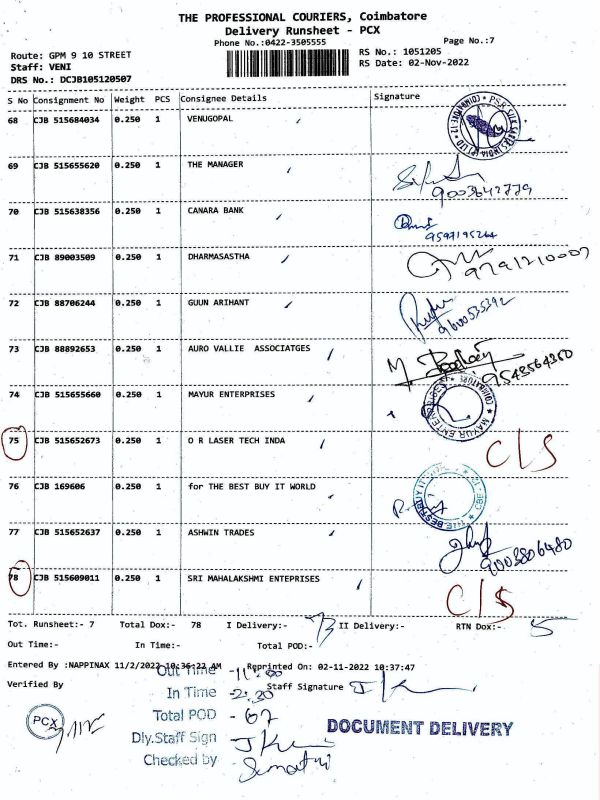 THE PROFESSIONAL COURIERS, Coimbatore
Delivery Runsheet - PCX
Phone No.:0422-3505555 Page No.:7
Route: GPM 9 10 STREET RS No.: 1051205
Staff: VENI RS Date: 02-Nov-2022
DRS No.: DCJB105120507
S No Consignment No Weight PCS Consignee Details Signature
68 CJB 515684034 0.250 1 VENUGOPAL
69 CJB 515655620 0.250 1 THE MANAGER
9003642779
70 CJB 515638356 0.250 1 CANARA BANK
9597195264
71 CJB 89003509 0.250 1 DHARMASASTHA
9791210007
72 CJB 88706244 0.250 1 GUUN ARIHANT
9600535392
73 CJB 88892653 0.250 1 AURO VALLIE ASSOCIATGES
9543564350
74 CJB 515655660 0.250 1 MAYUR ENTERPRISES
75 CJB 515652673 0.250 1 O R LASER TECH INDA C/S
76 CJB 169606 0.250 1 for THE BEST BUY IT WORLD
77 CJB 515652637 0.250 1 ASHWIN TRADES
9003806480
78 CJB 515609011 0.250 1 SRI MAHALAKSHMI ENTEPRISES C/S
Tot. Runsheet:- 7 Total Dox:- 78 I Delivery:- 73 II Delivery:- RTN Dox:- 5
Out Time:- In Time:- Total POD:-
Entered By :NAPPINAX 11/2/2022 10:36:22 AM Reprinted On: 02-11-2022 10:37:47
Verified By Staff Signature
Out Time - 11:00
In Time - 2:30
Total POD - 67
Dly.Staff Sign
Checked by
PCX
DOCUMENT DELIVERY